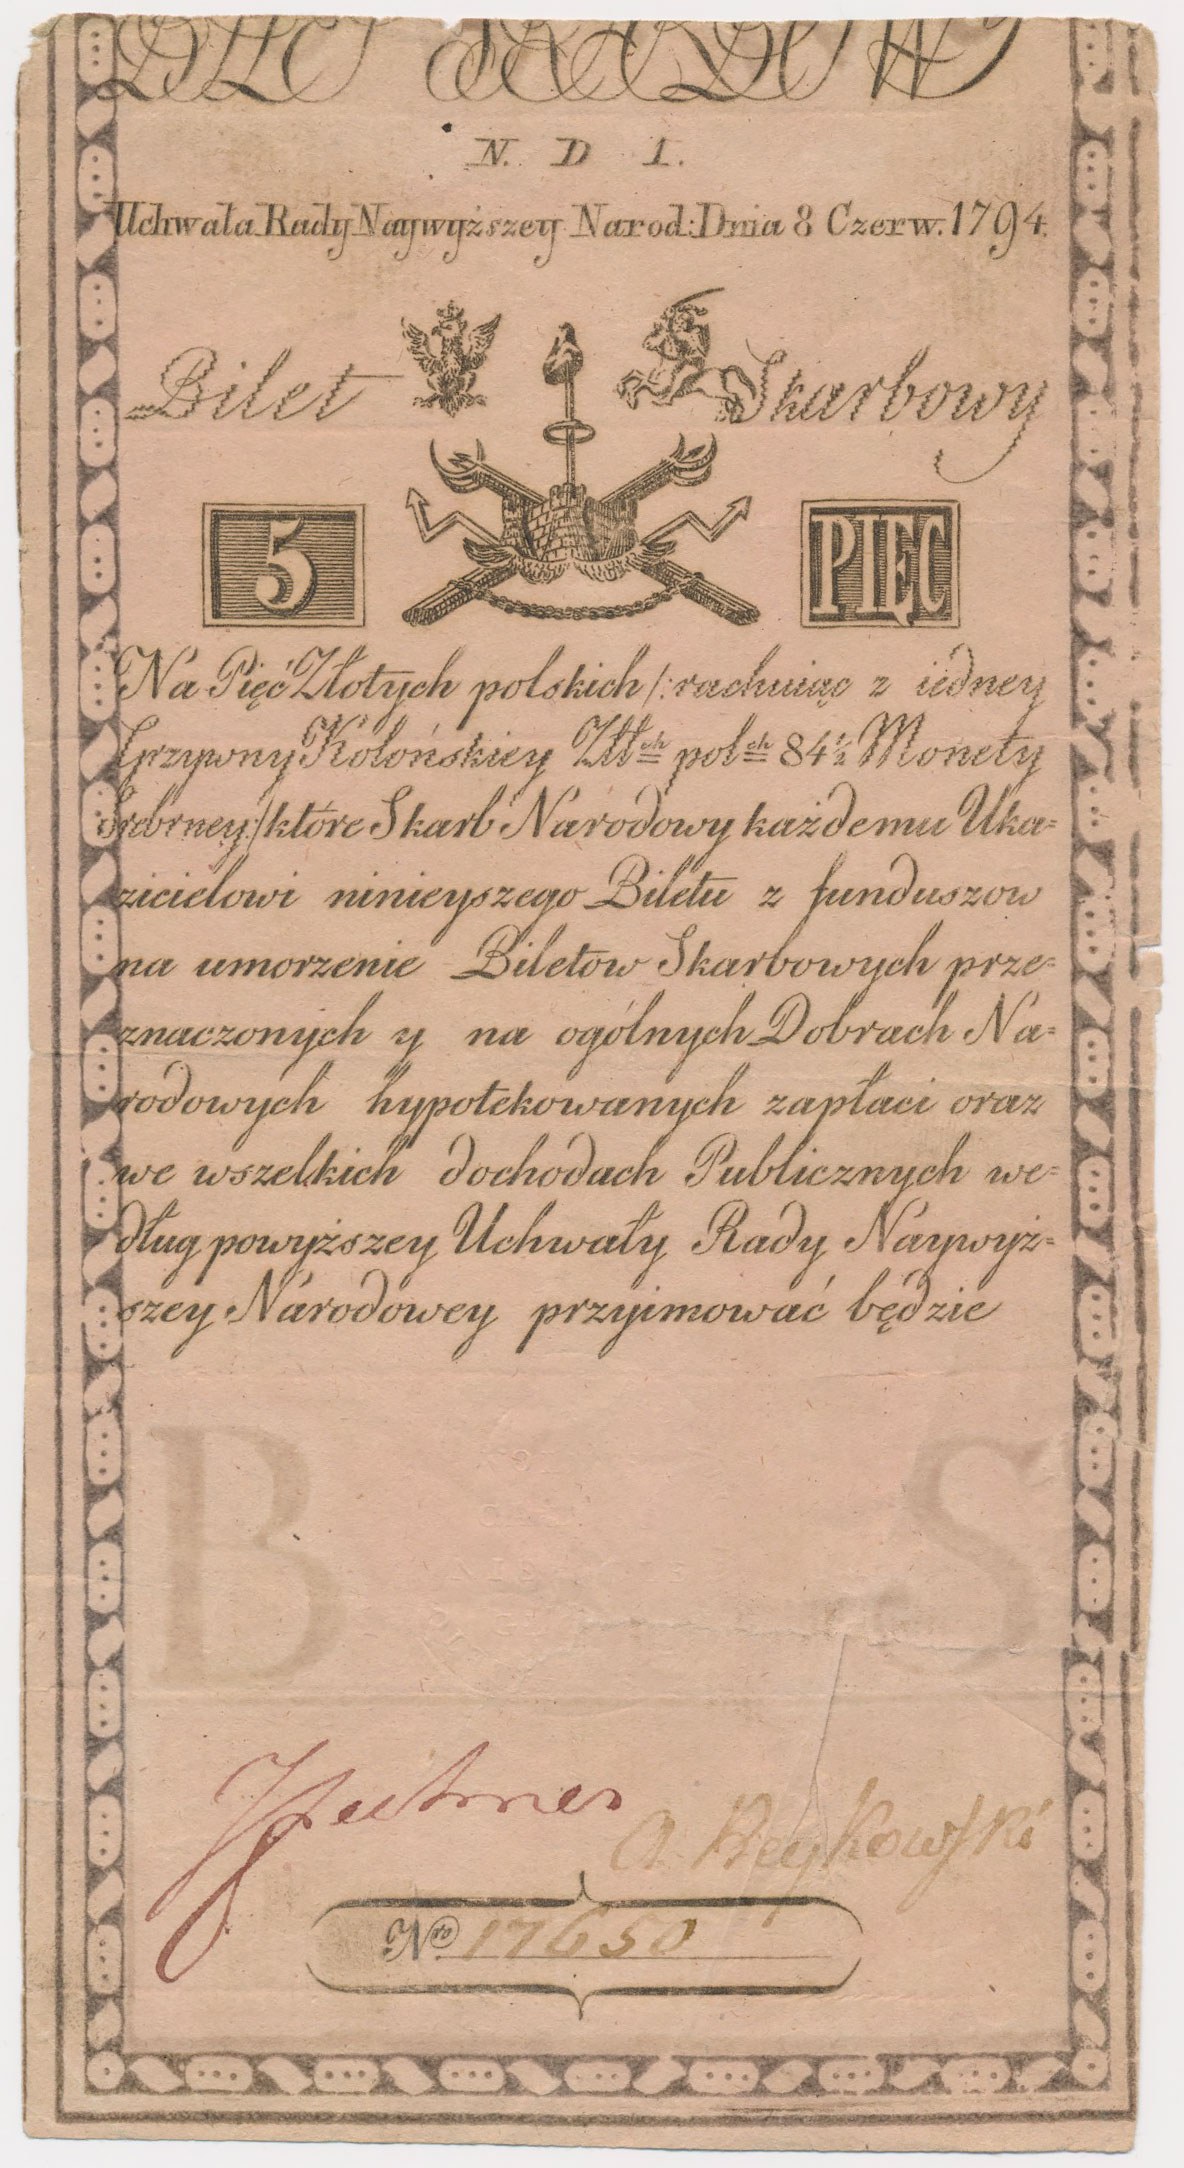 BILET SKARBOWY
N. D 1.
Uchwała Rady Naywyższey Narod: Dnia 8 Czerw. 1794.
Bilet Skarbowy
5 PIĘĆ
Na Pięć Złotych polskich /: rachuiąc z iedney
Grzywny Kolońskiey Złł^ch pol^ch 84 1/2 Monety
Srebrney :/ które Skarb Narodowy każdemu Uka=
zicielowi ninieyszego Biletu z funduszow
na umorzenie Biletow Skarbowych prze=
znaczonych y na ogólnych Dobrach Na=
rodowych hypotekowanych zapłaci oraz
we wszelkich dochodach Publicznych we=
dług powyższey Uchwały Rady Naywyż=
szey Narodowey przyimować będzie
B S
A. Reykowski
N^ro 17650